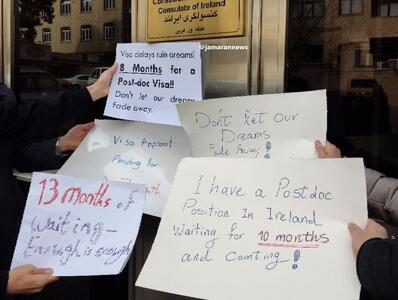 Consulate of Ireland
کنسولگری ایرلند
@jamarannews
Visa delays ruin dreams!
8 Months for a
Post-doc Visa!!
Don't let our dreams
fade away.
Don't let Our
Dreams
Fade Away!
Visa
Pending for
13 months of
Waiting-
Enough is enough
I have a Postdoc
Position In Ireland
Waiting for 10 months
and counting!